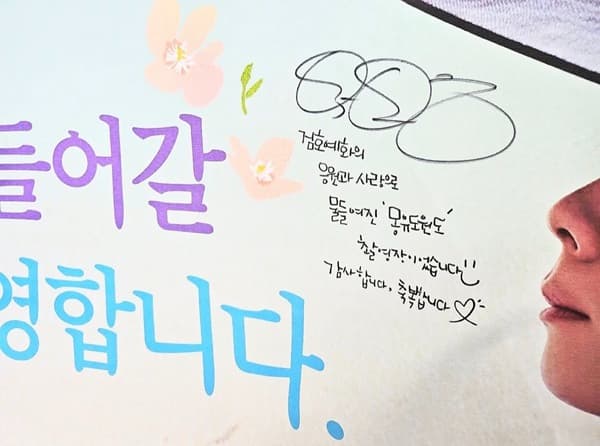 들어갈
영합니다.
검호예화의
응원과 사랑으로
물들여진 '몽유도원도'
촬영장이었습니다!!
감사합니다. 축복합니다♡